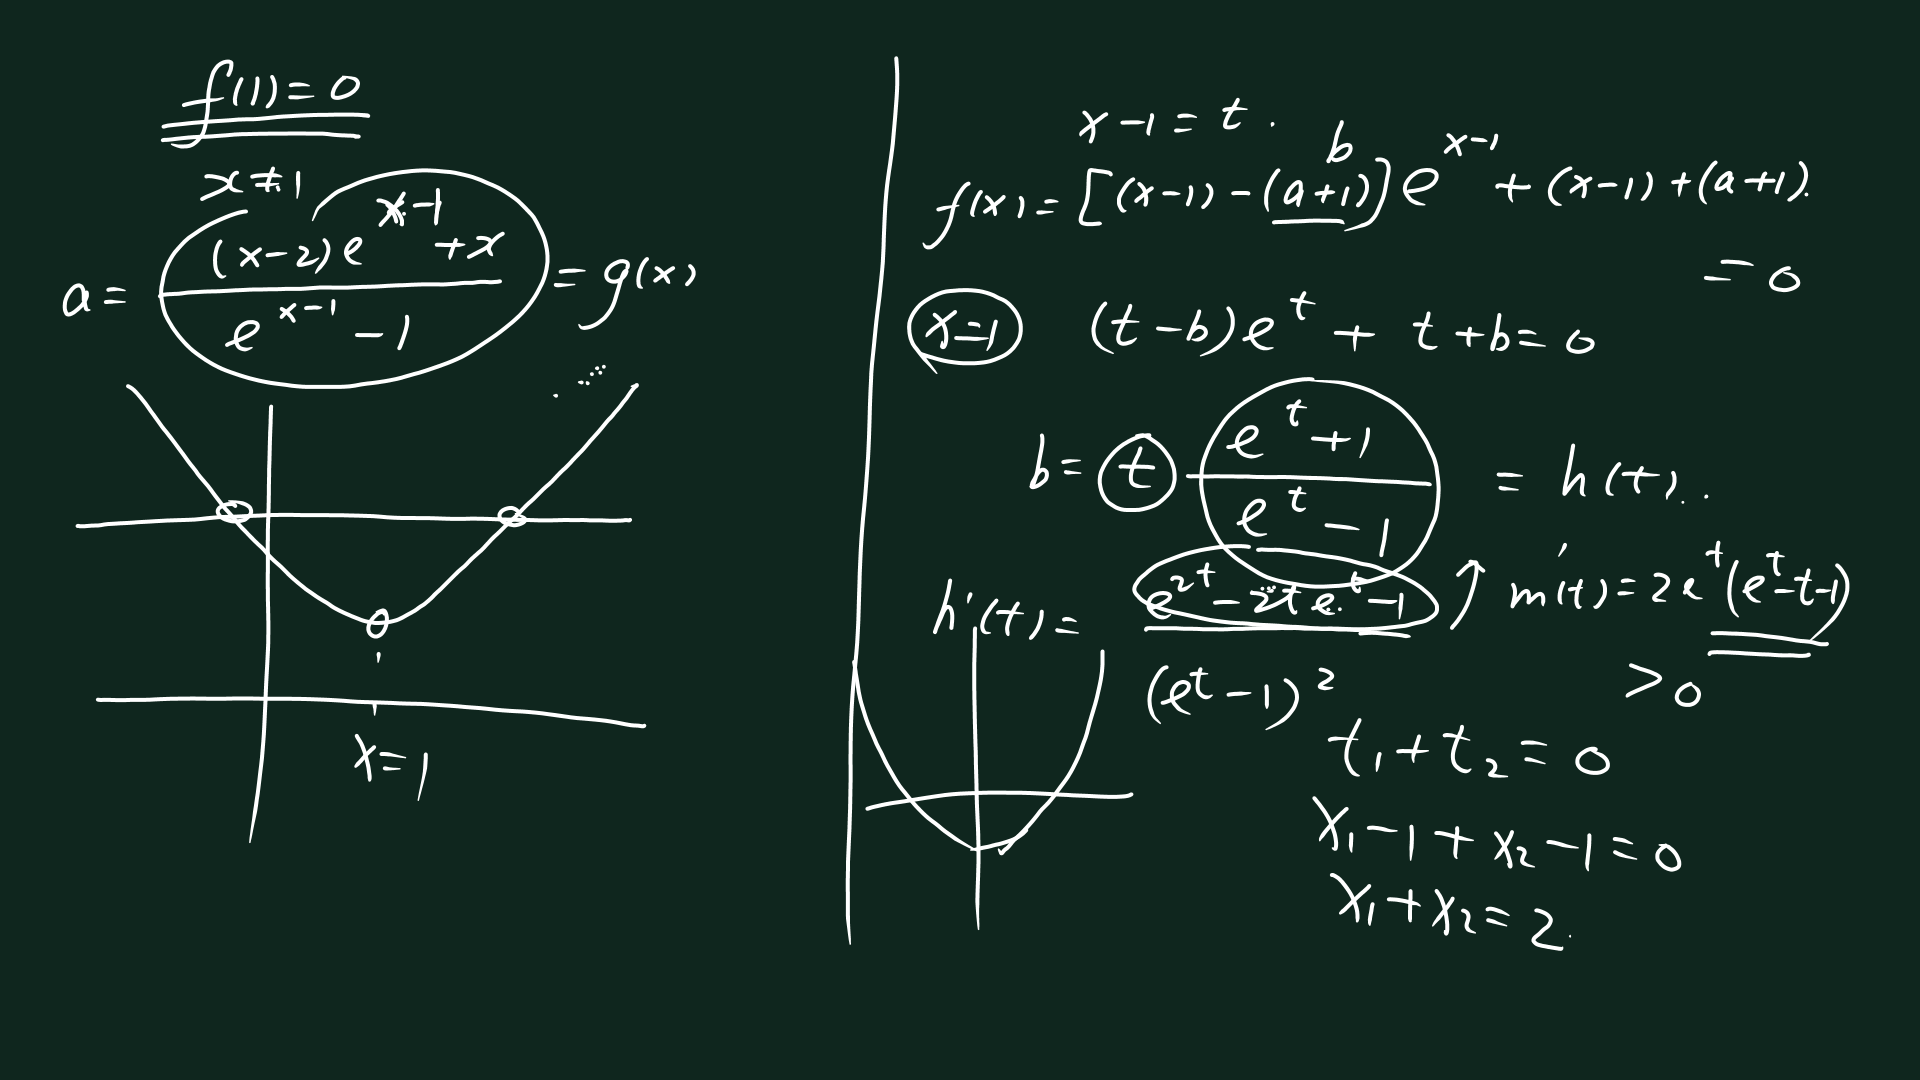 f(1) = 0
x ≠ 1
a = ((x-2)e^{x-1} + x) / (e^{x-1} - 1) = g(x)
x = 1
x - 1 = t .
b
f(x) = [(x-1) - (a+1)] e^{x-1} + (x-1) + (a+1).
= 0
x=1 (t-b)e^t + t + b = 0
b = t (e^t + 1) / (e^t - 1) = h(t)..
h'(t) = (e^{2t} - 2te^t - 1) / (e^t - 1)^2 ↗ m'(t) = 2e^t (e^t - t - 1)
> 0
t_1 + t_2 = 0
x_1 - 1 + x_2 - 1 = 0
x_1 + x_2 = 2.